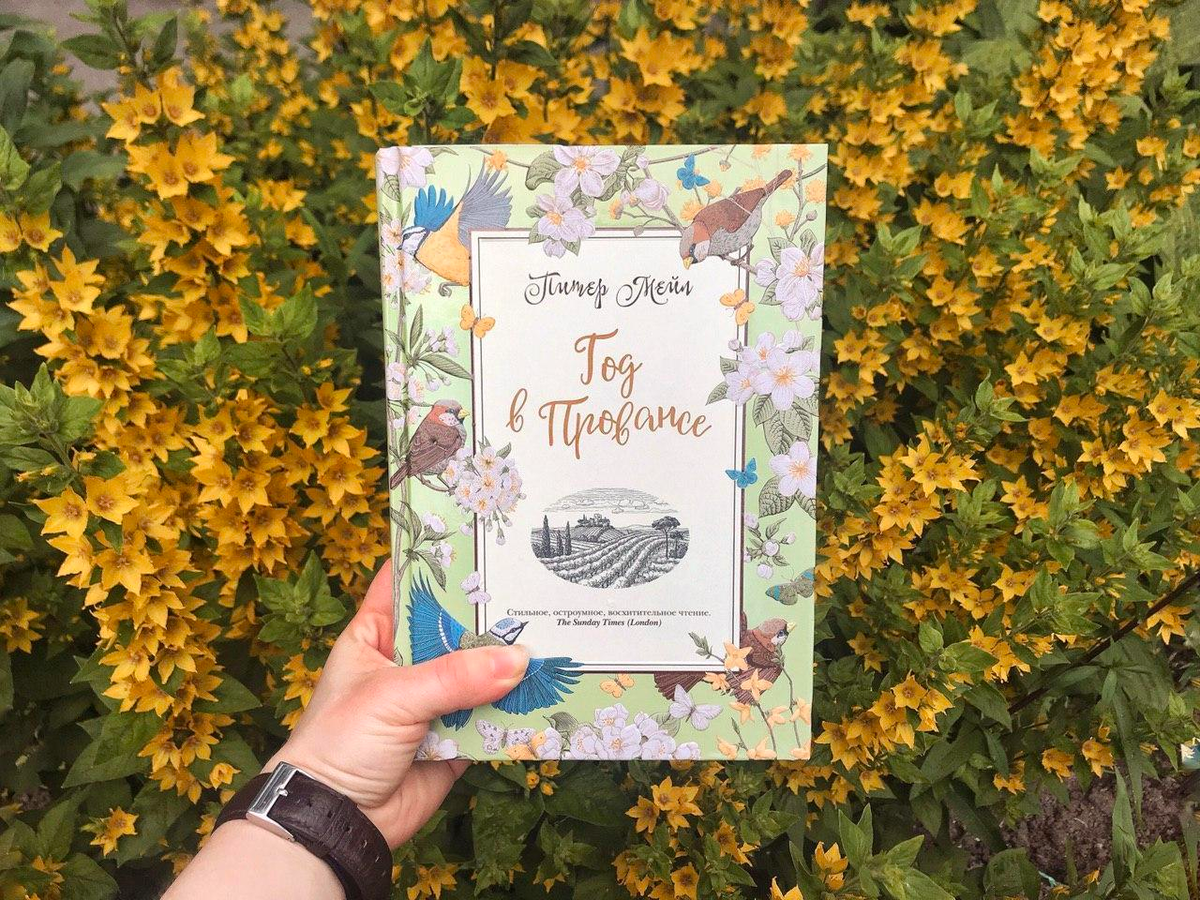 Питер Мейл
Год
в Провансе
Стильное, остроумное, восхитительное чтение.
The Sunday Times (London)